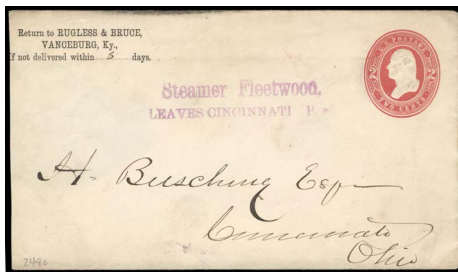 Return to RUGLESS & BRUCE,
VANCEBURG, Ky.,
If not delivered within 5 days.
U.S. POSTAGE
2 2
TWO CENTS
Steamer Fleetwood,
LEAVES CINCINNATI
H. Buesching Esq
Cincinnati
Ohio
2490